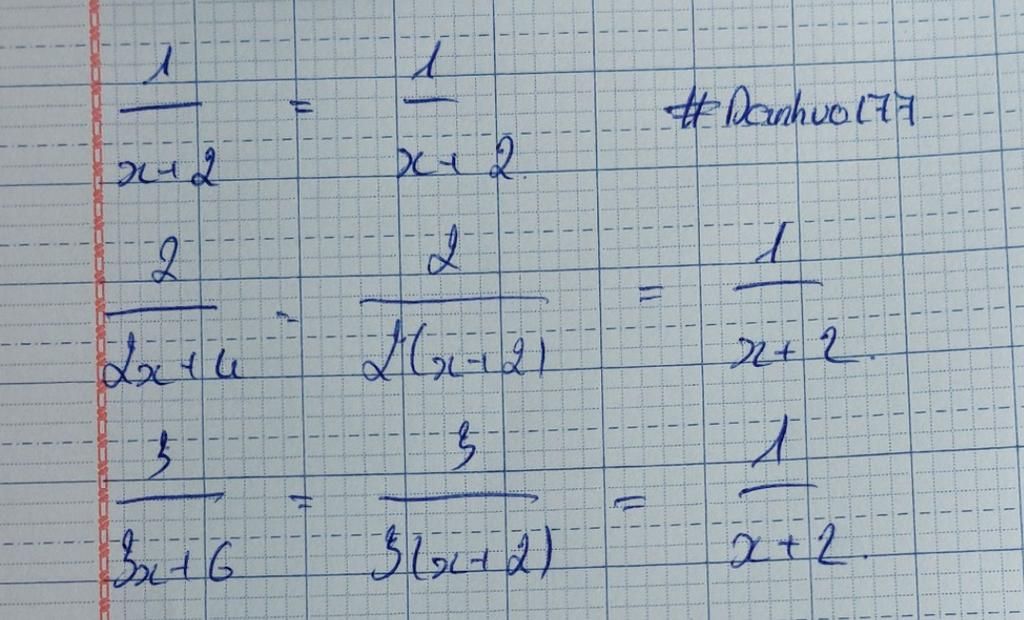 1/(x+2) = 1/(x+2) #Danhvo177
2/(2x+4) = 2/(2(x+2)) = 1/(x+2).
3/(3x+6) = 3/(3(x+2)) = 1/(x+2).